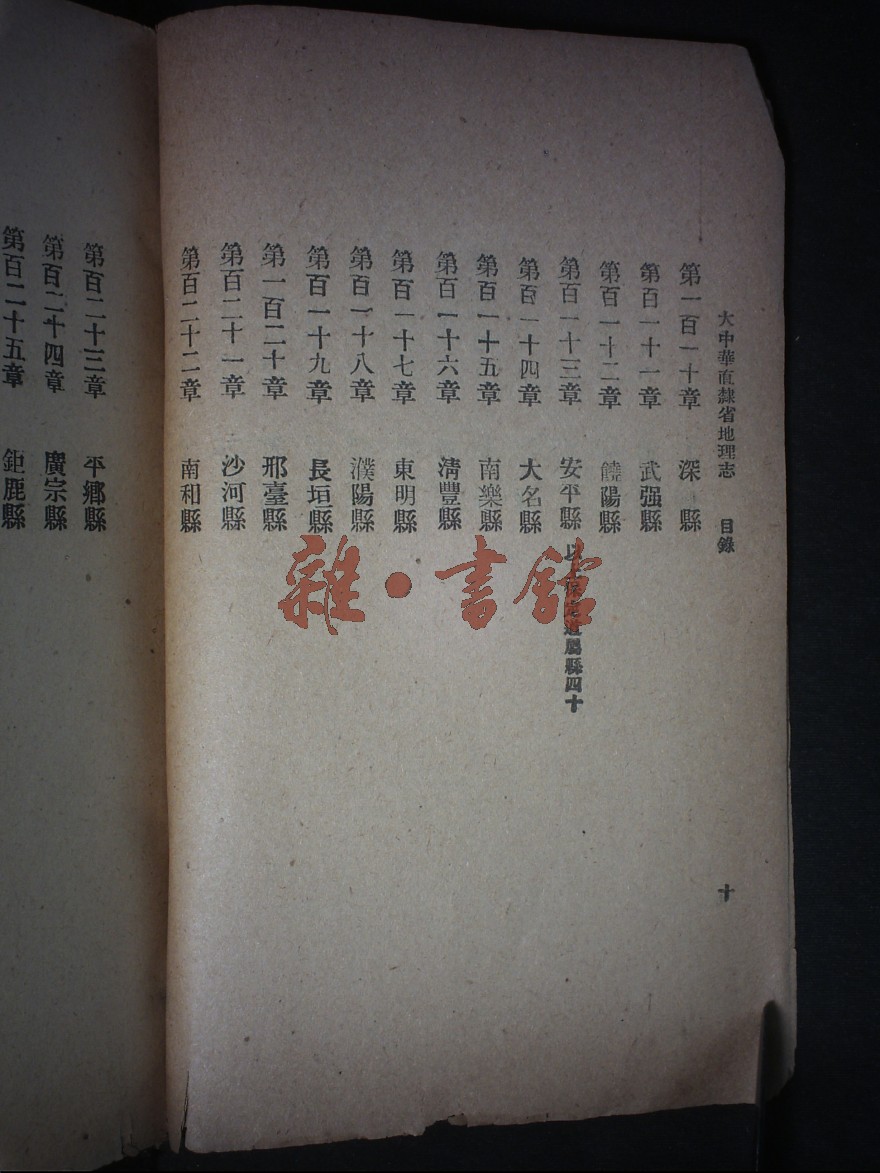 大中華直隸省地理志 目錄 十
第一百一十章 深縣
第百一十一章 武强縣
第百一十二章 饒陽縣
第百一十三章 安平縣 以上保定道屬縣四十
第百一十四章 大名縣
第百一十五章 南樂縣
第百一十六章 清豐縣
第百一十七章 東明縣
第百一十八章 濮陽縣
第百一十九章 長垣縣
第一百二十章 邢臺縣
第百二十一章 沙河縣
第百二十二章 南和縣
第百二十三章 平鄉縣
第百二十四章 廣宗縣
第百二十五章 鉅鹿縣
雜·書館